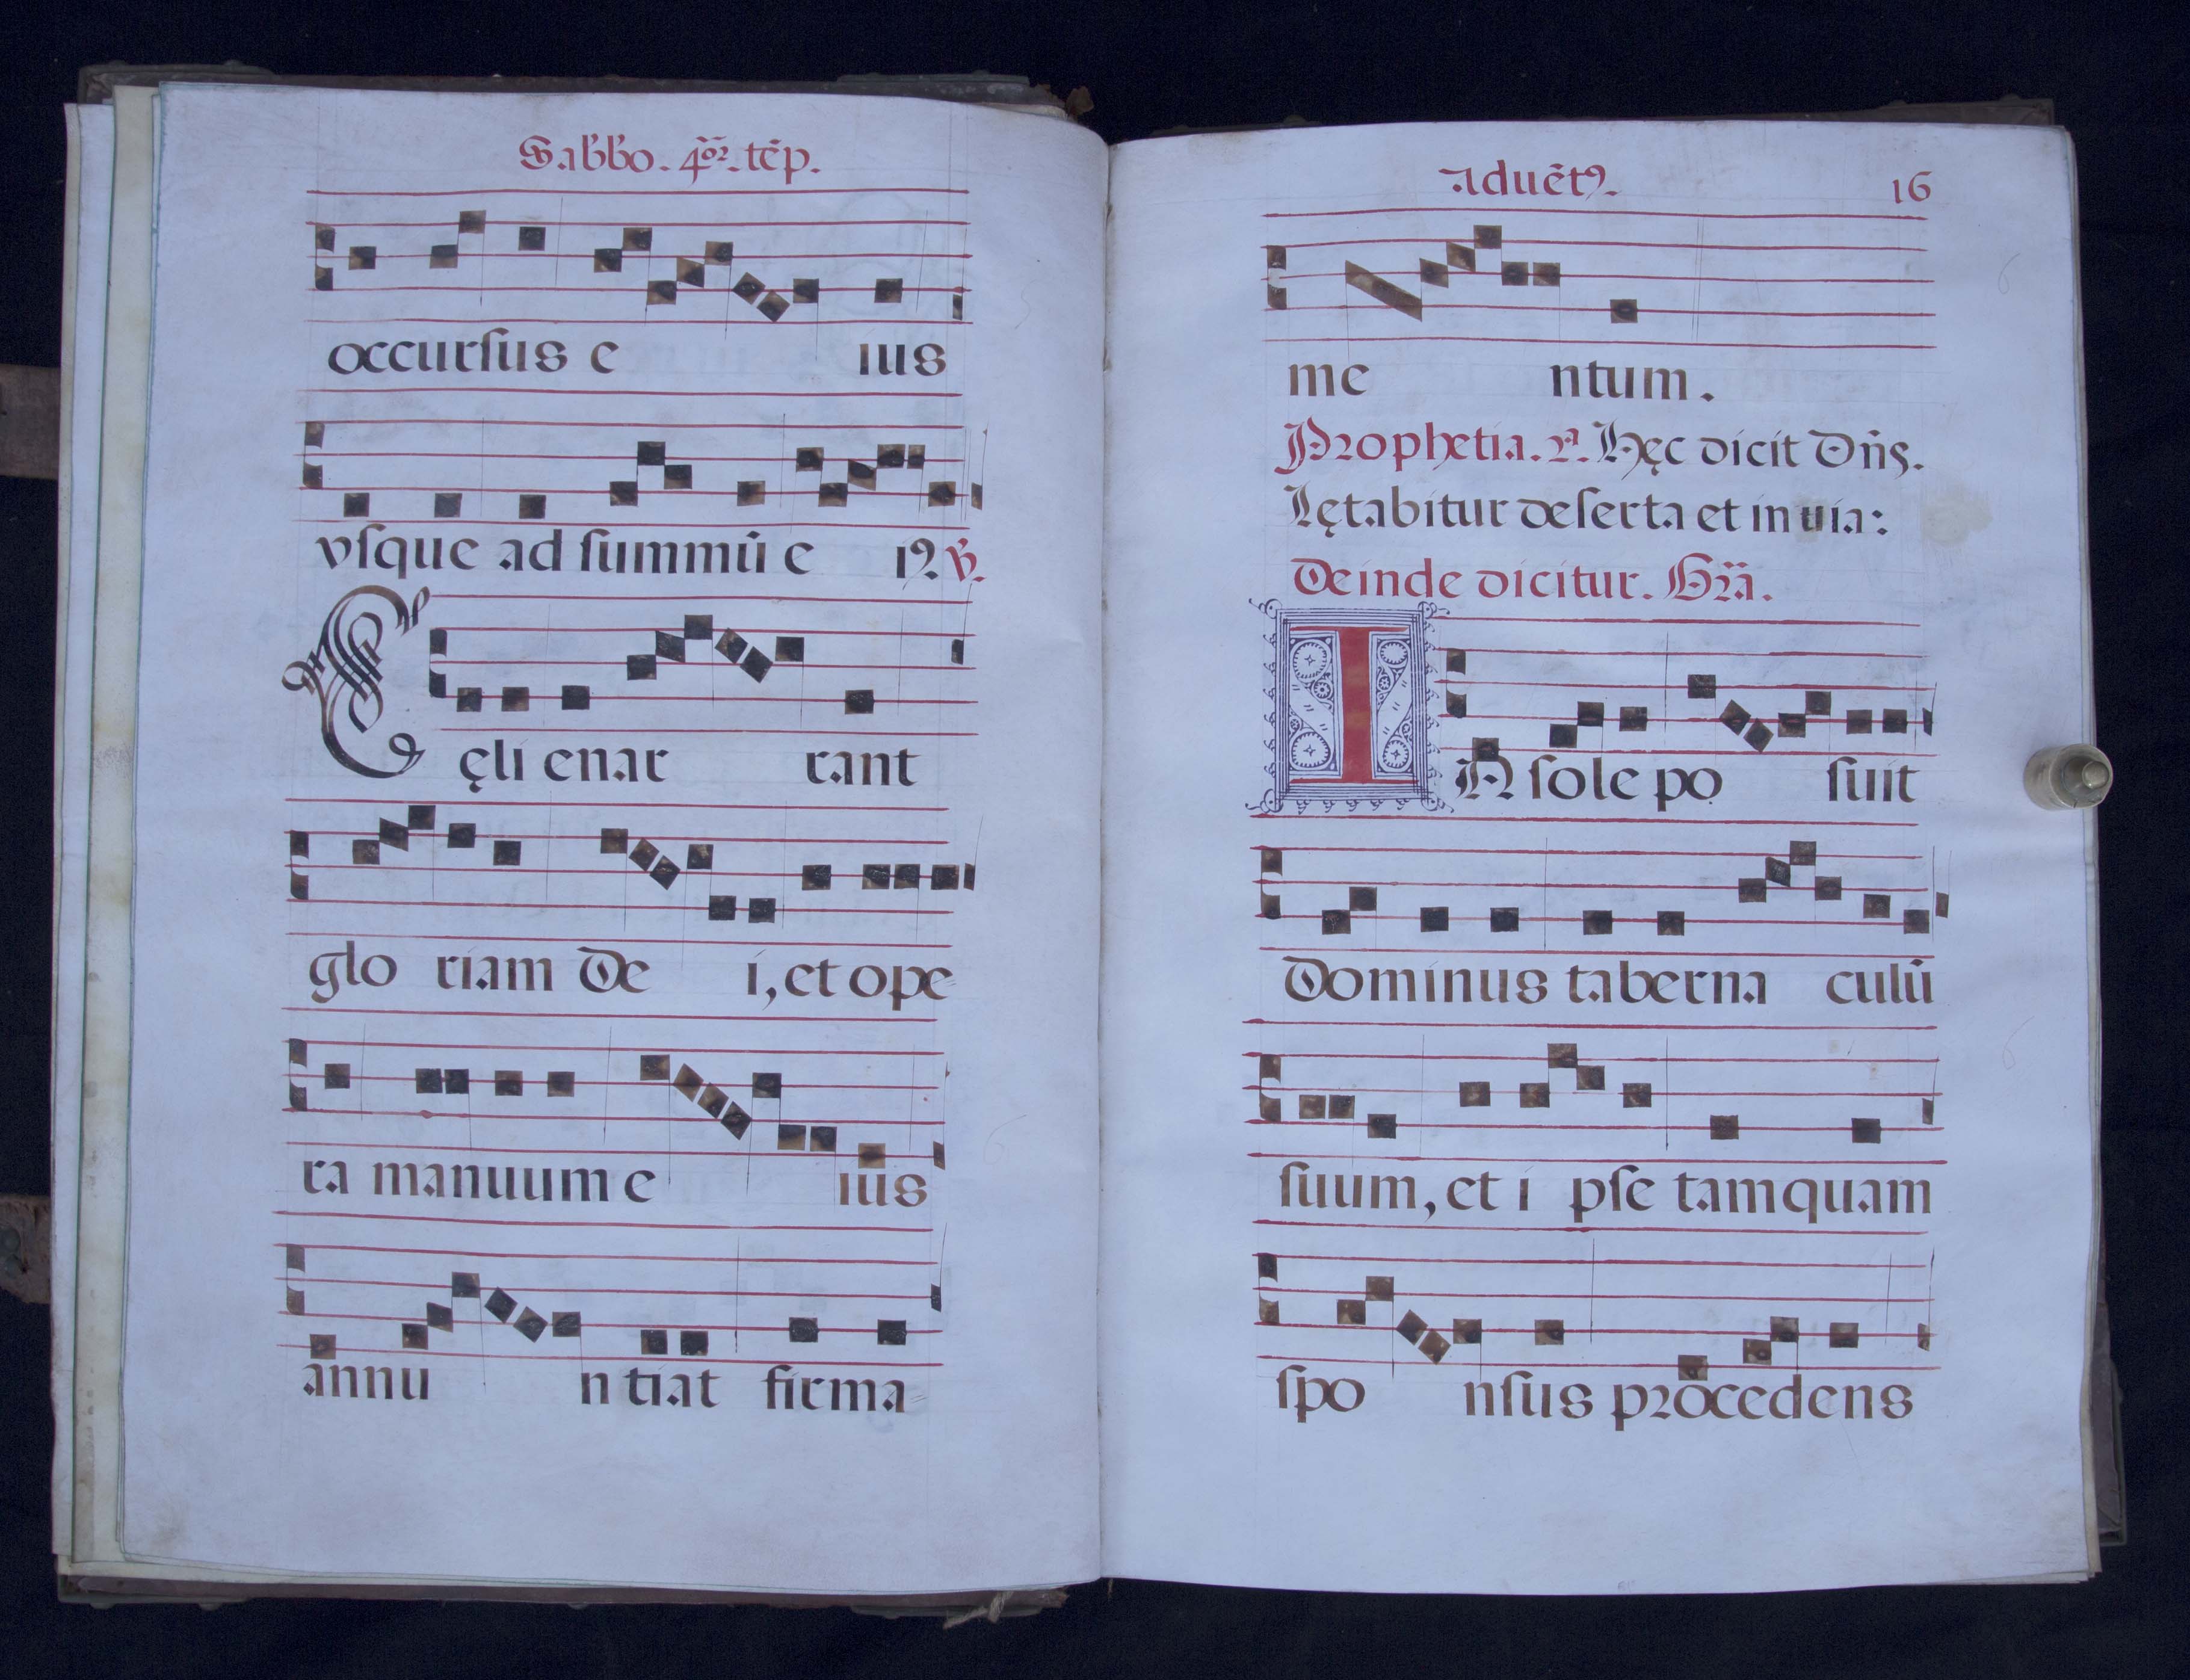 Sabb̃o. 4õꝛ. tẽp.
occurſus e ius
vſque ad ſummũ e i9. ℣.
Cęli enar rant
glo riam De i, et ope=
ra manuum e ius
annu ntiat firma=
Aduẽt9. 16
me ntum.
Prophetia. 2ª. Hęc dicit Dñs.
Lętabitur deſerta et inuia:
Deinde dicitur. Gꝛã.
IN ſole po ſuit
Dominus taberna culũ
ſuum, et i pſe tamquam
ſpo nſus pꝛocedens